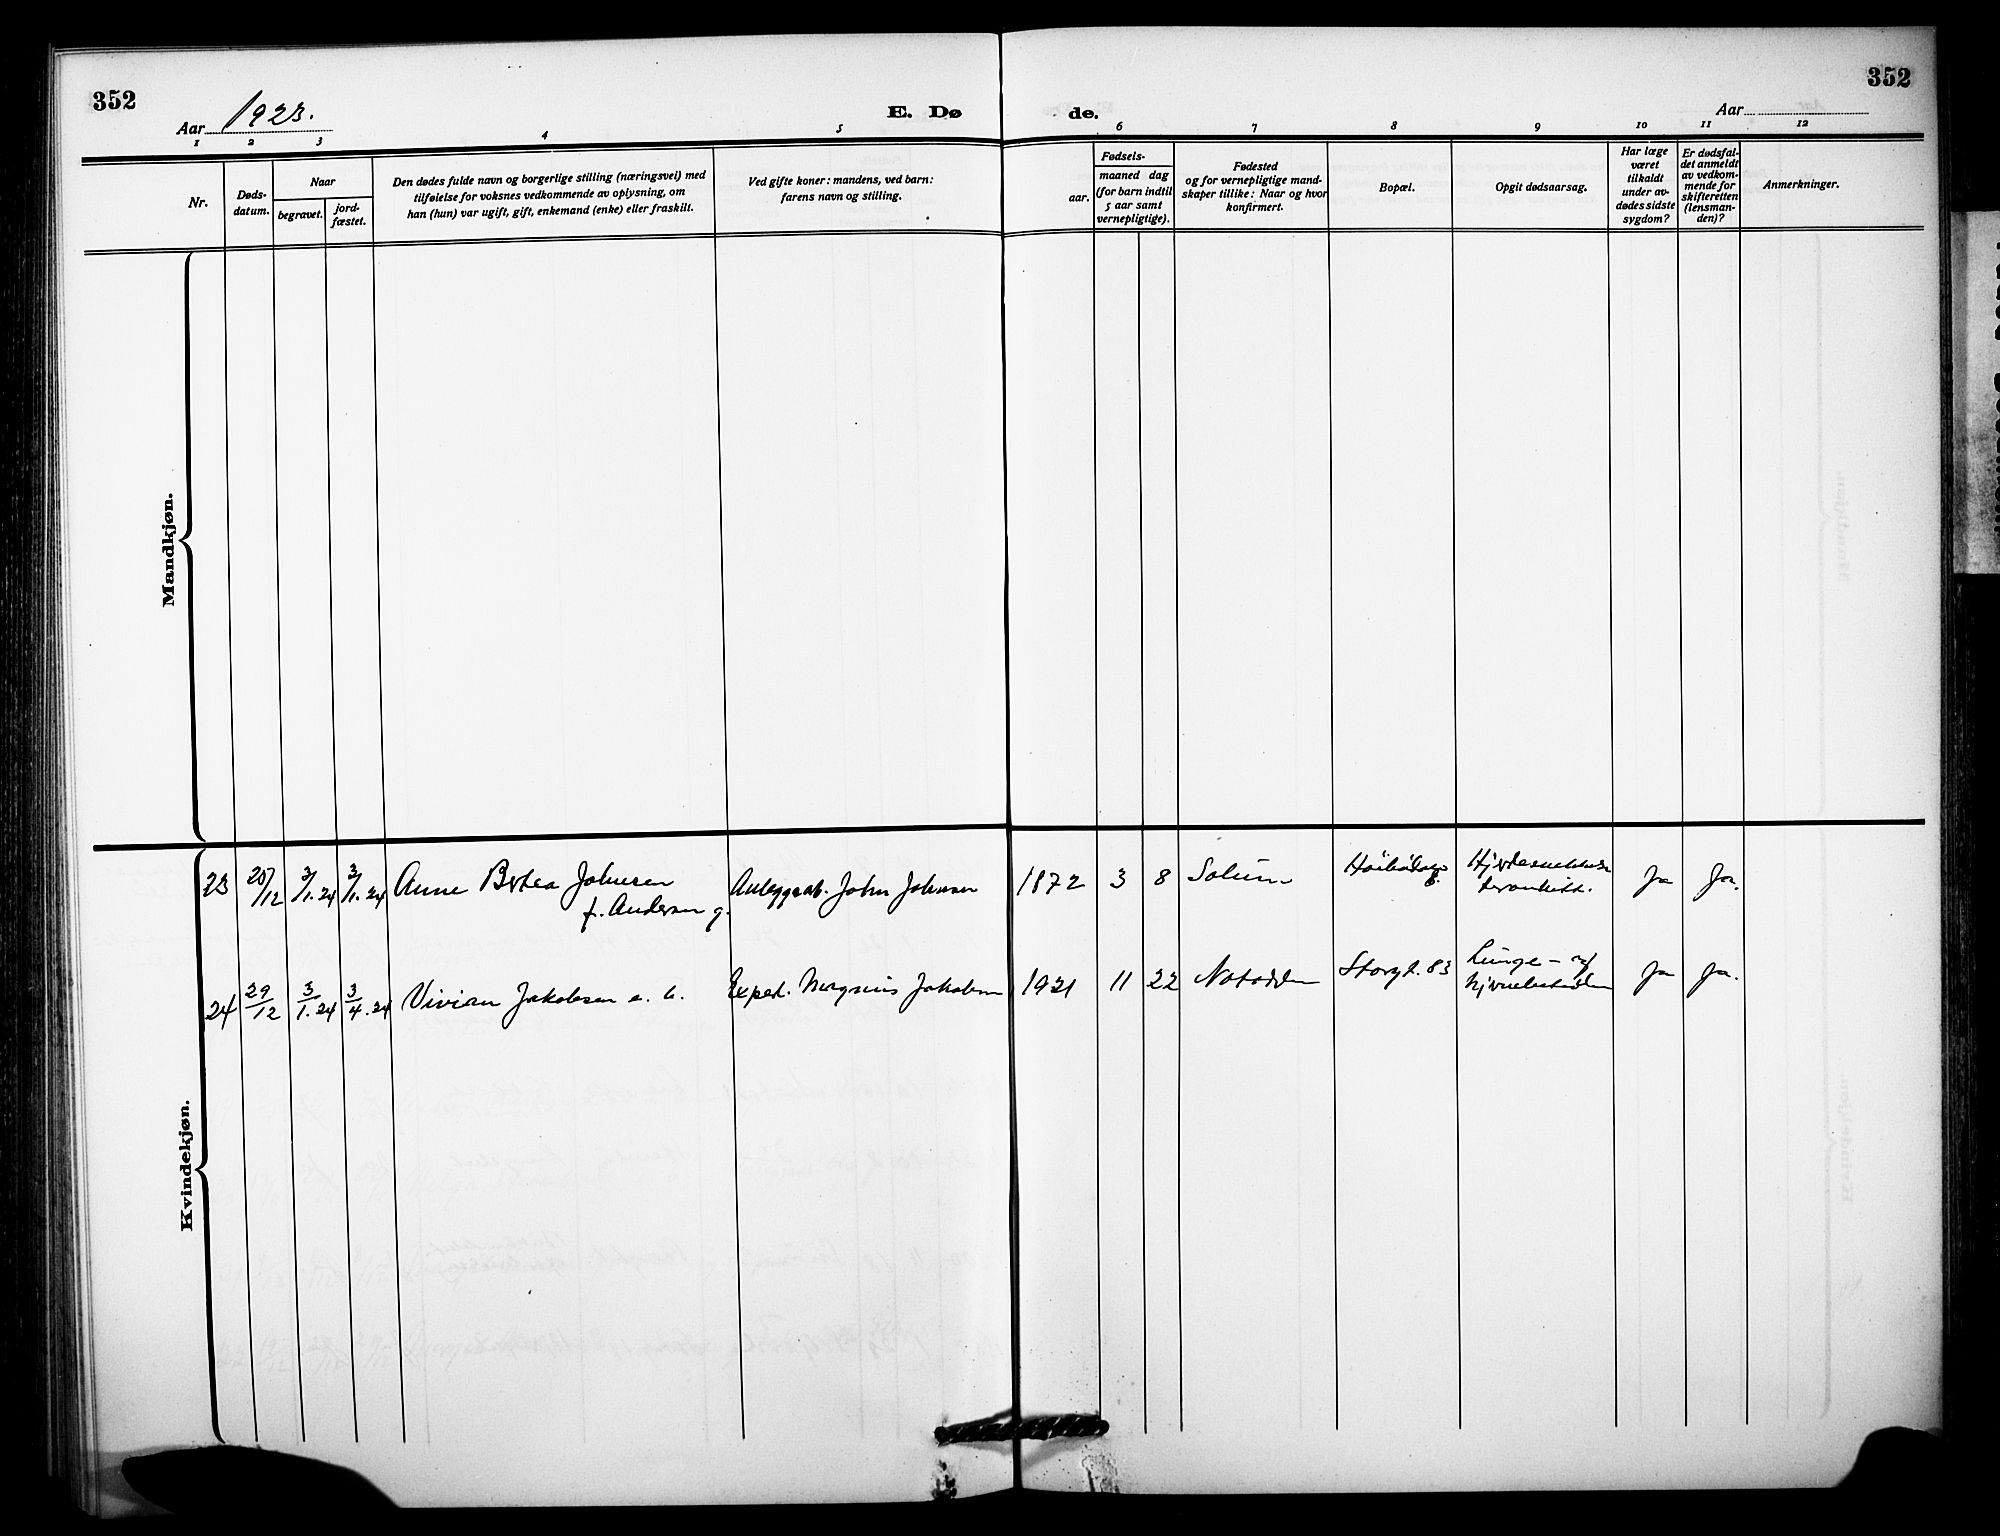 352
352
Aar 1923.
E. Dø
de.
Aar
1 2 3 4 5 6 7 8 9 10 11 12
Nr.
Døds-
datum.
Naar
begravet.
jord-
fæstet.
Den dødes fulde navn og borgerlige stilling (næringsvei) med
tilføielse for voksnes vedkommende av oplysning, om
han (hun) var ugift, gift, enkemand (enke) eller fraskilt.
Ved gifte koner: mandens, ved barn:
farens navn og stilling.
Fødsels-
aar.
maaned dag
(for barn indtil
5 aar samt
vernepligtige).
Fødested
og for vernepligtige mand-
skaper tillike: Naar og hvor
konfirmert.
Bopæl.
Opgit dødsaarsag.
Har læge
været
tilkaldt
under av-
dødes sidste
sygdom?
Er dødsfal-
det anmeldt
av vedkom-
mende for
skifteretten
(lensman-
den)?
Anmerkninger.
Mandkjøn.
Kvindekjøn.
23 /12 3/1.24 3/1.24 Anne Johnsen John Johnsen 1872 3 8 Solum ja ja.
f. Andersen g.
24 29/12 3/1.24 3/4.24 Vivian Jakobsen Exped. Magnus Jakobsen 1921 11 22 Notodden Storgt. 83 Lunge- ja ja.